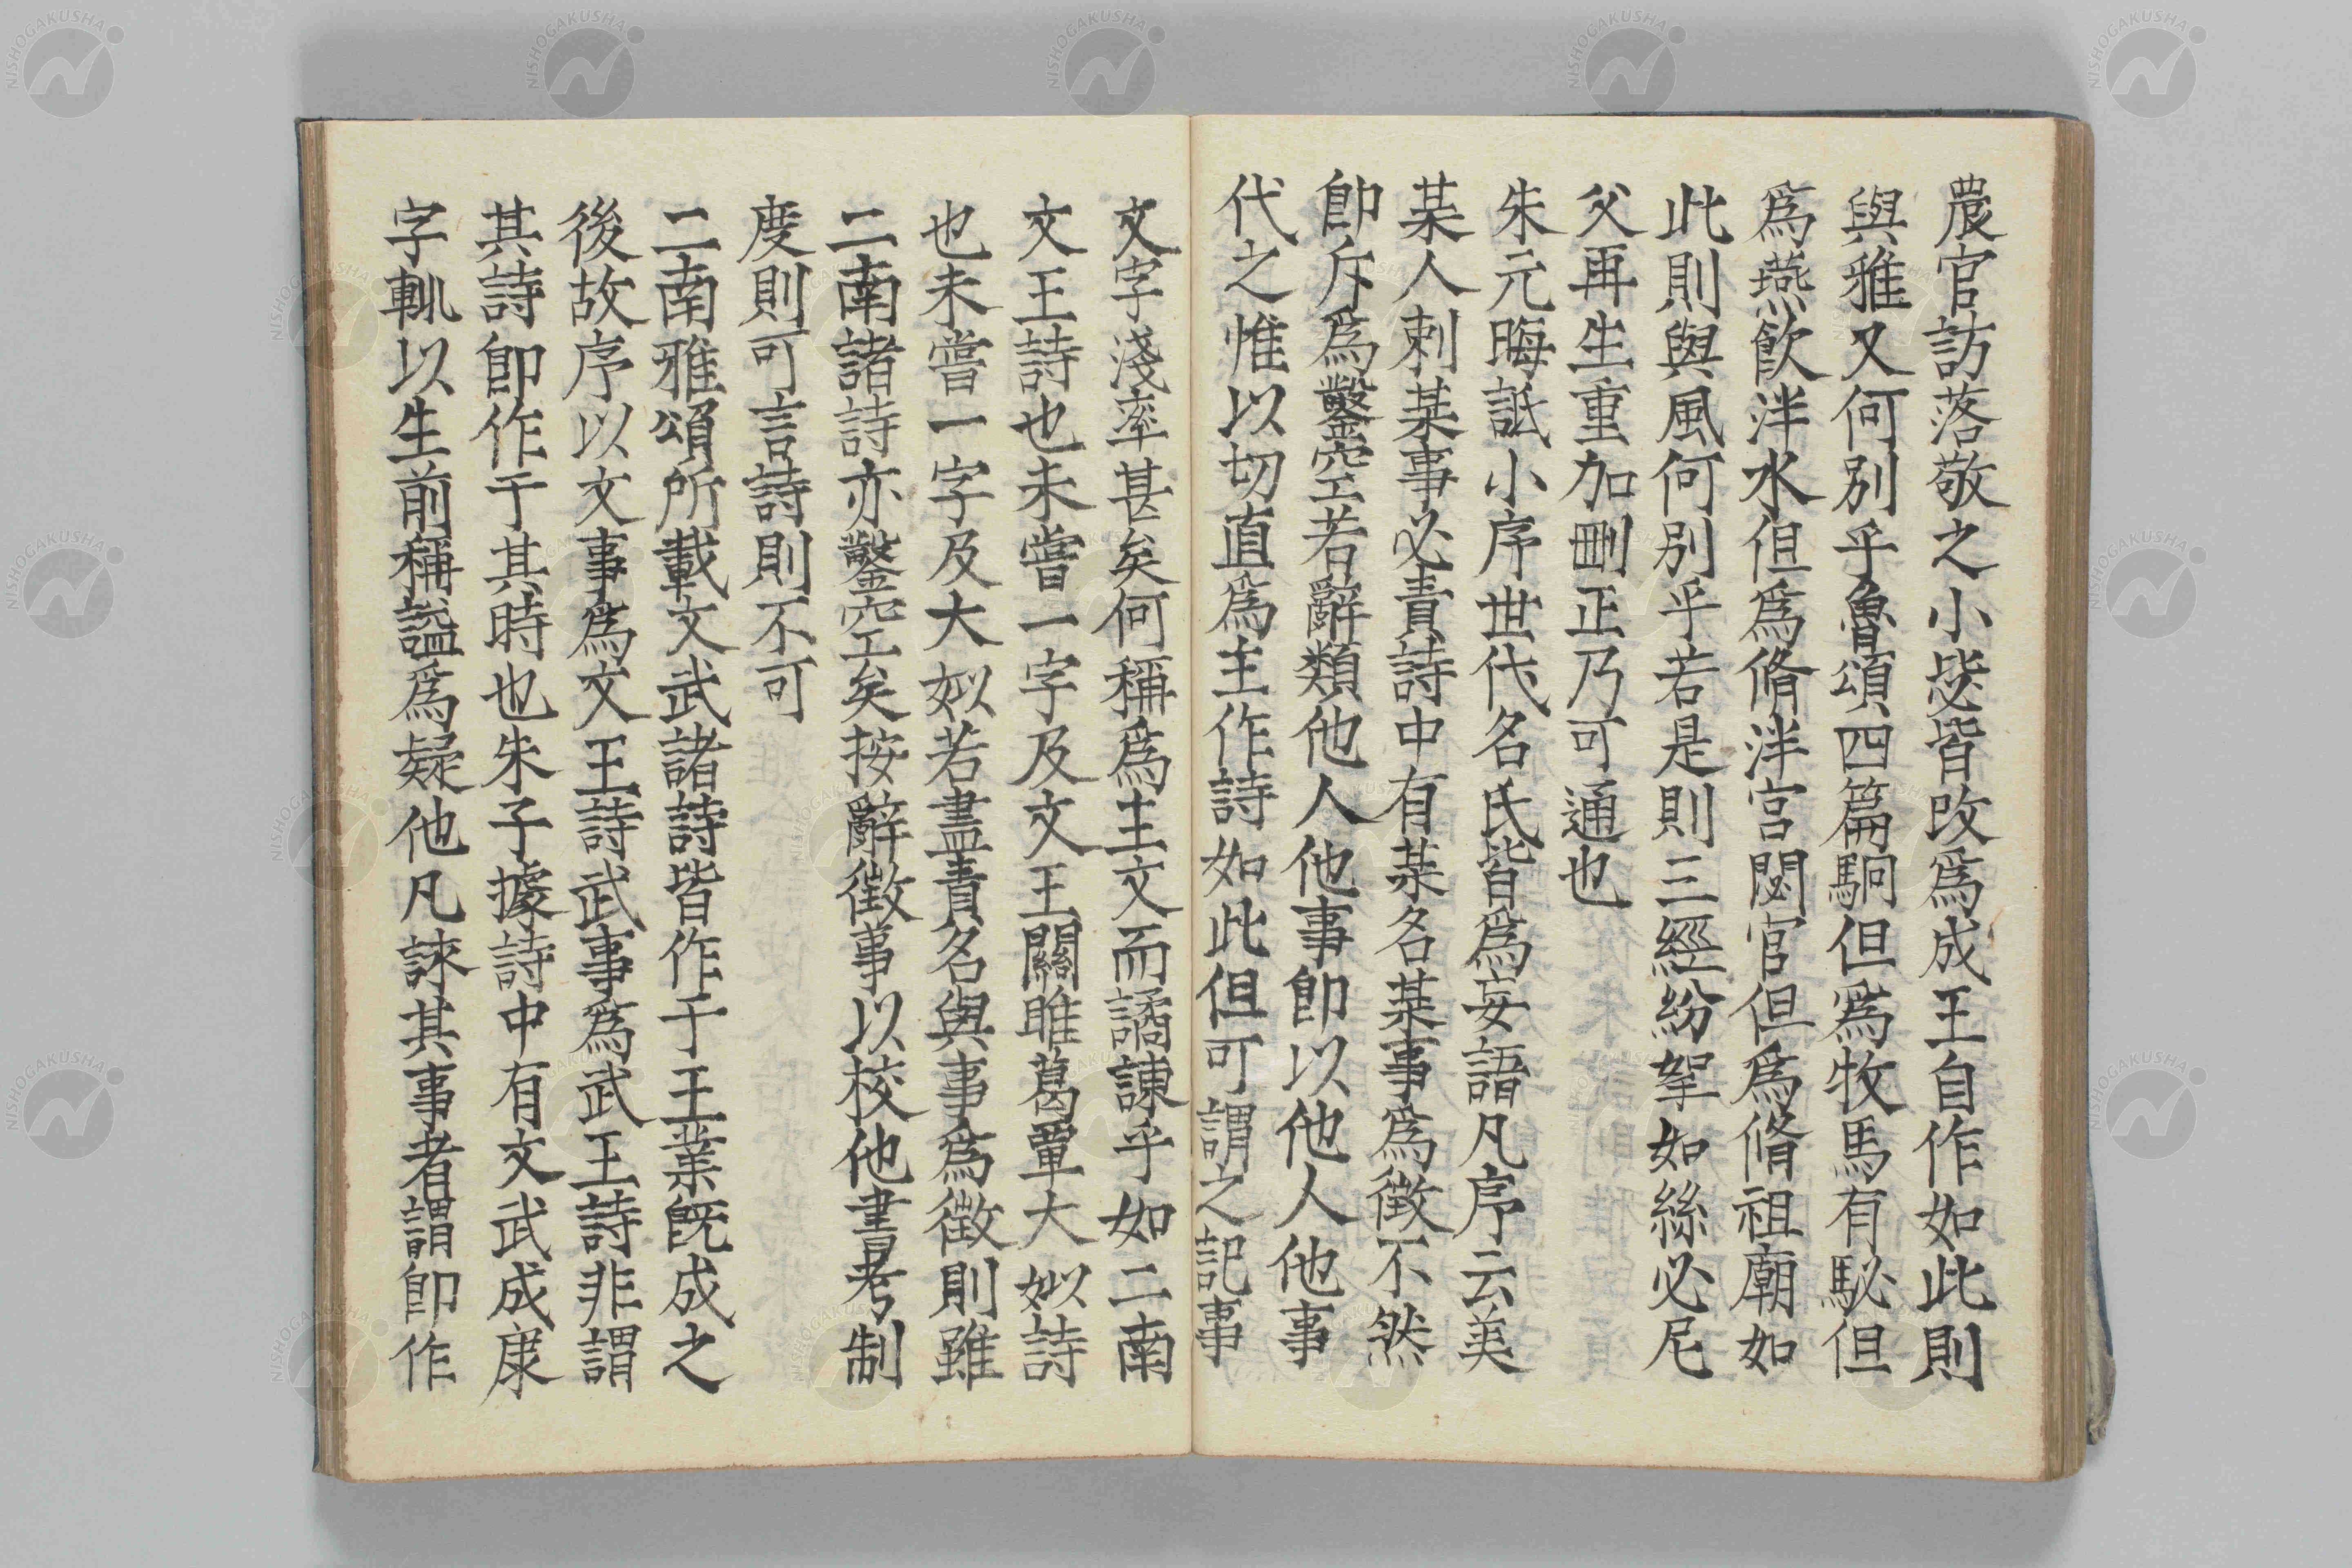 農官訪落敬之小毖皆改爲成王自作如此則
與雅又何別乎魯頌四篇駉但爲牧馬有駜但
爲燕飲泮水但爲脩泮宮閟宮但爲脩祖廟如
此則與風何別乎若是則三經紛挐如絲必尼
父再生重加刪正乃可通也
朱元晦詆小序世代名氏皆爲妄語凡序云美
某人刺某事必責詩中有某名某事爲徵不然
卽斥爲鑿空若辭類他人他事卽以他人他事
代之惟以切直爲主作詩如此但可謂之記事
文字淺率甚矣何稱爲主文而譎諫乎如二南
文王詩也未嘗一字及文王關雎葛覃大姒詩
也未嘗一字及大姒若盡責名與事爲徵則雖
二南諸詩亦鑿空矣按辭徵事以校他書考制
度則可言詩則不可
二南雅頌所載文武諸詩皆作于王業旣成之
後故序以文事爲文王詩武事爲武王詩非謂
其詩卽作于其時也朱子據詩中有文武成康
字輒以生前稱謚爲疑他凡誄其事者謂卽作
NISHOGAKUSHA